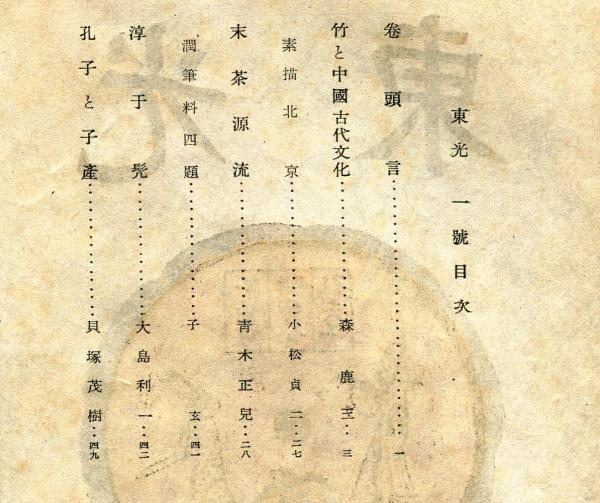 東光
東光 一號目次
卷頭言……………………一
竹と中國古代文化…………森鹿三…三
素描北京…………小松貞二…二七
末茶源流…………青木正兒…二八
潤筆料四題…………子玄…四一
淳于髡…………大島利一…四二
孔子と子產…………貝塚茂樹…四九